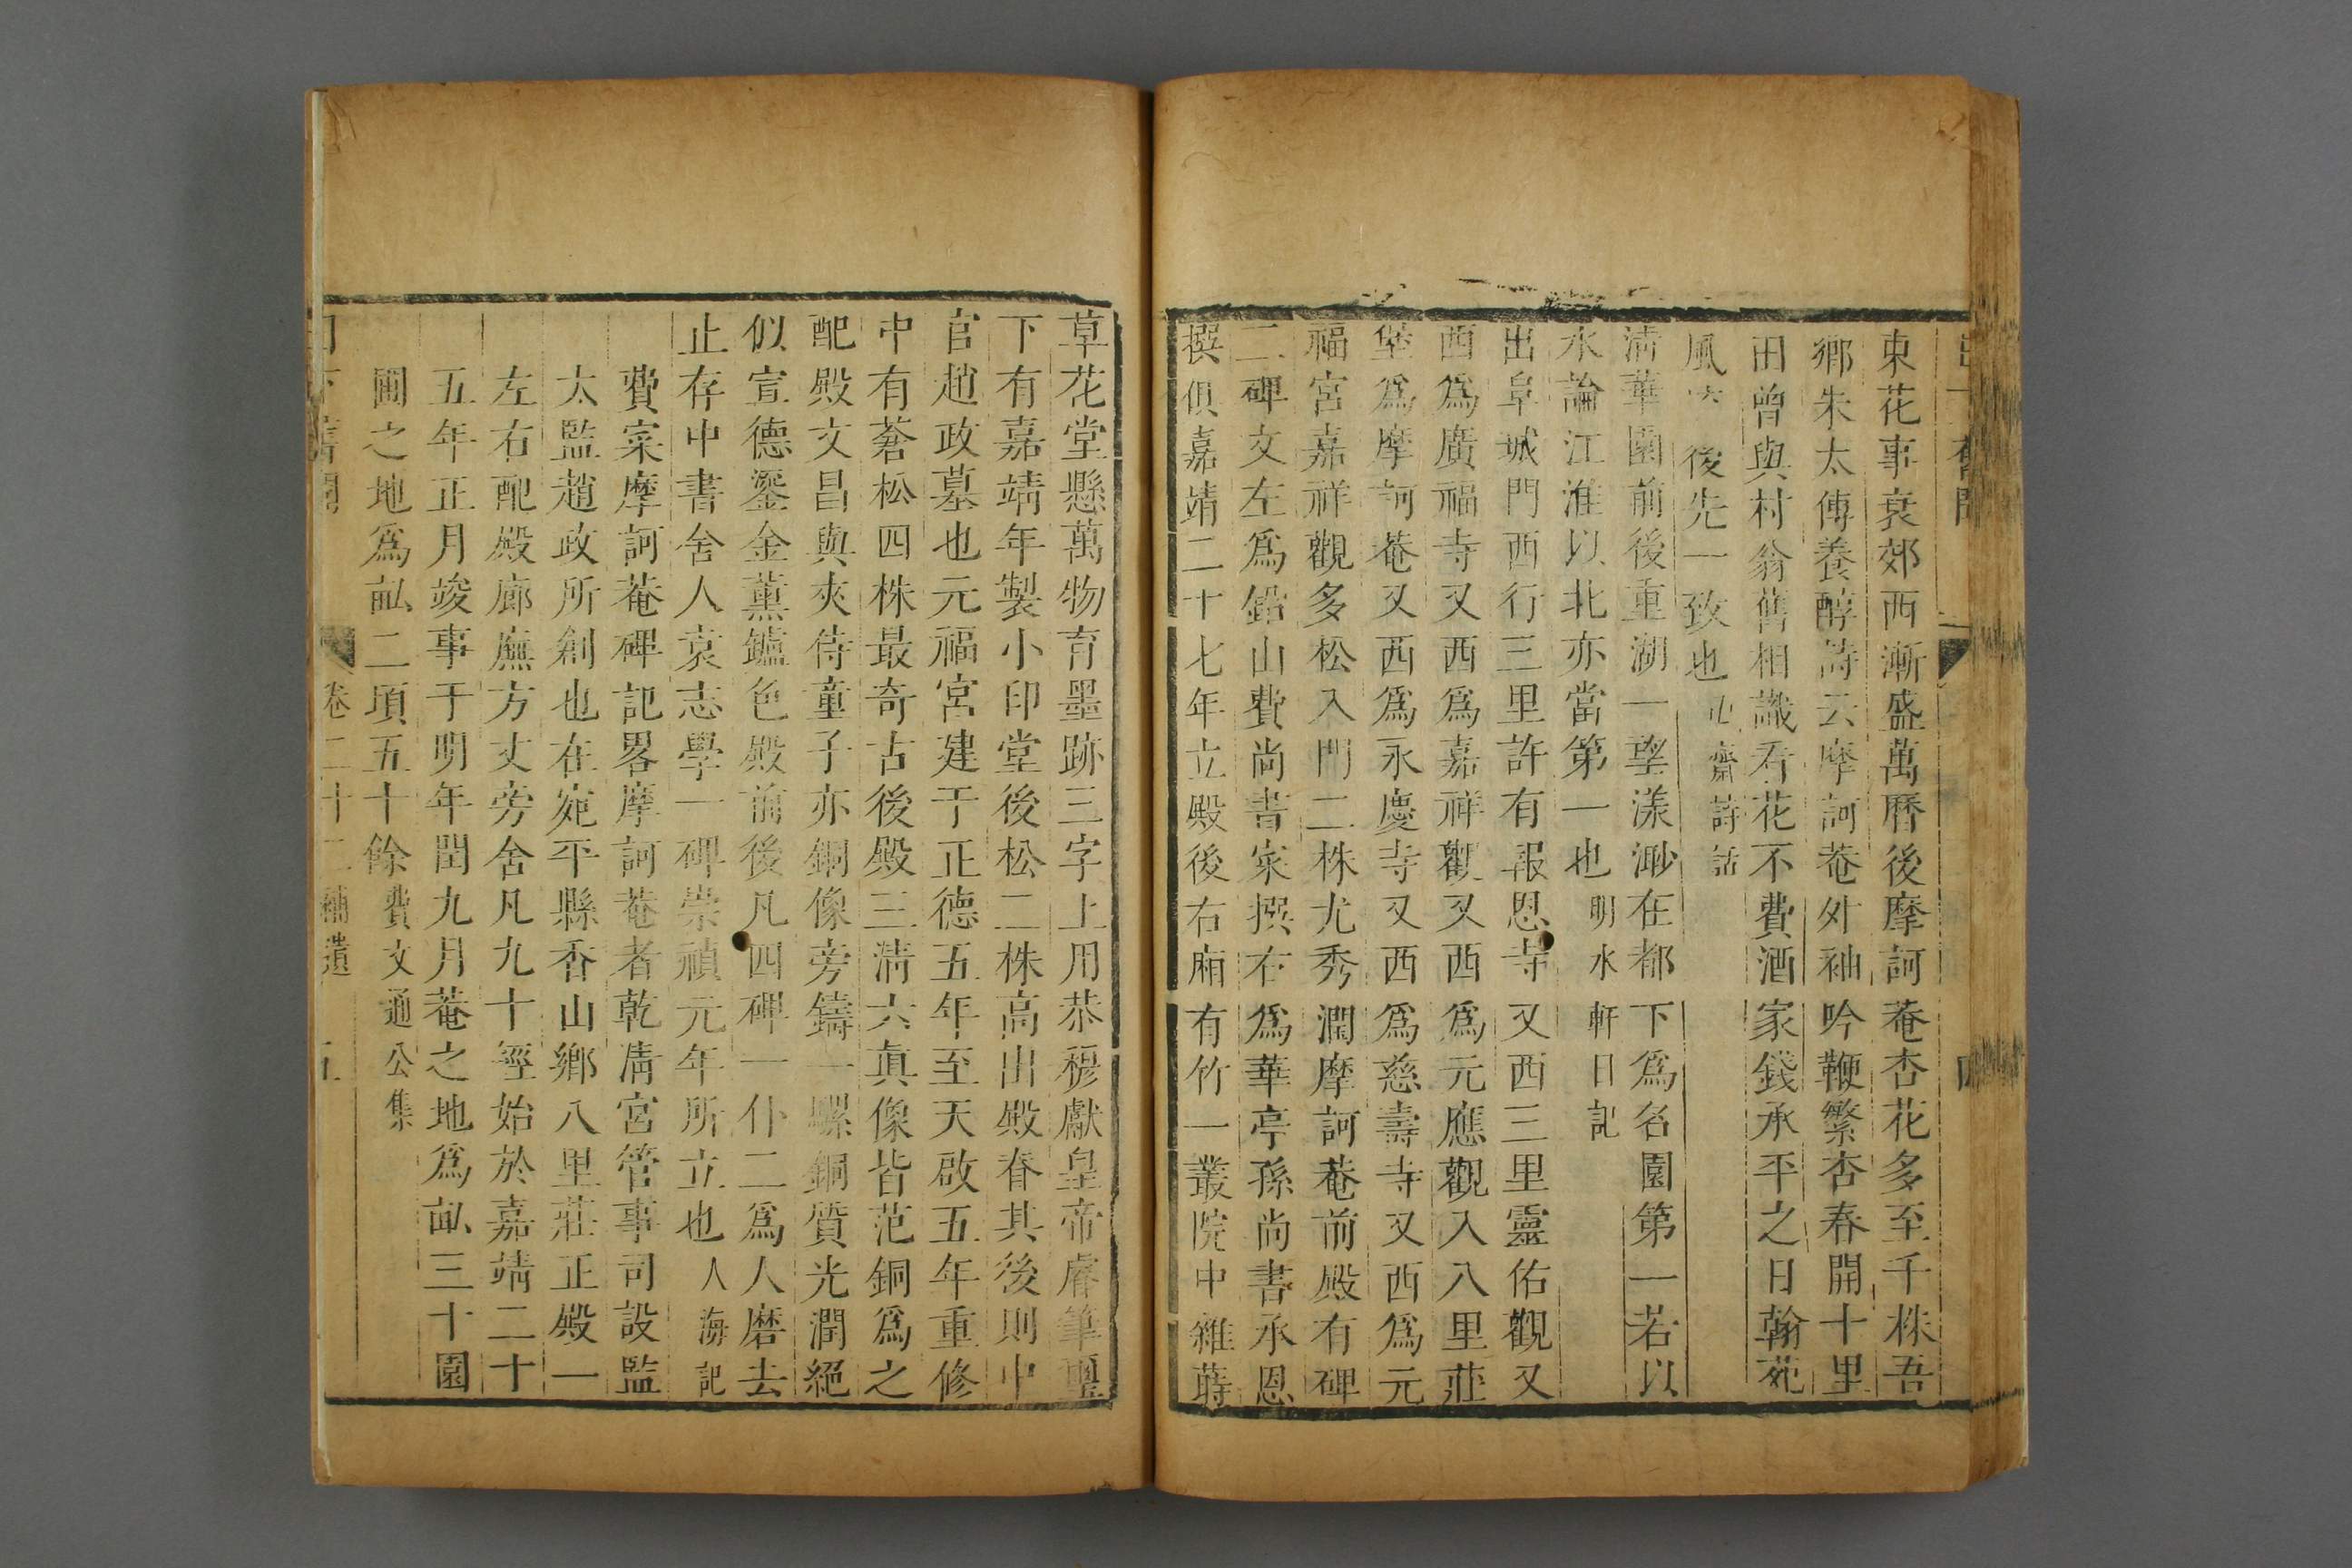 東花事衰郊西漸盛萬曆後摩訶菴杏花多至千株吾
鄉朱太傅養醇詩云摩訶菴外袖吟鞭繁杏春開十里
田曾與村翁舊相識看花不費酒家錢承平之日翰苑
風 後先一致也 齋詩話
清華園前後重湖一望漾渺在都下爲名園第一若以
水論江淮以北亦當第一也 明水軒日記
出阜城門西行三里許有報恩寺又西三里靈佑觀又
西爲廣福寺又西爲嘉祥觀又西爲元應觀入八里莊
堡爲摩訶菴又西爲永慶寺又西爲慈壽寺又西爲元
福宮嘉祥觀多松入門二株尤秀潤摩訶菴前殿有碑
二碑文左爲鉛山費尚書寀撰右爲華亭孫尚書承恩
撰俱嘉靖二十七年立殿後右廂有竹一叢院中雜蒔
草花堂懸萬物育墨跡三字上用恭穆獻皇帝睿筆璽
下有嘉靖年製小印堂後松二株高出殿脊其後則中
官趙政墓也元福宮建于正德五年至天啟五年重修
中有蒼松四株最奇古後殿三清六真像皆范銅爲之
配殿文昌與夾侍童子亦銅像旁鑄一騾銅質光潤絕
似宣德鎏金薰鑪色殿前後凡四碑一仆二爲人磨去
止存中書舍人袁志學一碑崇禎元年所立也 人海記
費寀摩訶菴碑記畧摩訶菴者乾清宮管事司設監
太監趙政所創也在宛平縣香山鄉八里莊正殿一
左右配殿廊廡方丈旁舍凡九十經始於嘉靖二十
五年正月竣事于明年閏九月菴之地爲畝三十園
圃之地爲畝二頃五十餘 費文通公集
下舊聞 卷二十二補遺 五